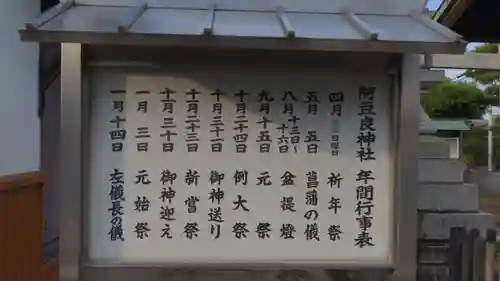 阿豆良神社 年間行事表
四月 日曜日 祈年祭
五月 五日 菖蒲の儀
八月 十三日〜十六日 盆提燈
九月 十五日 元祭
十月 二十四日 例大祭
十月 三十日 御神送り
十一月 二十三日 新嘗祭
十一月 三十日 御神迎え
一月 三日 元始祭
一月 十四日 左儀長の儀